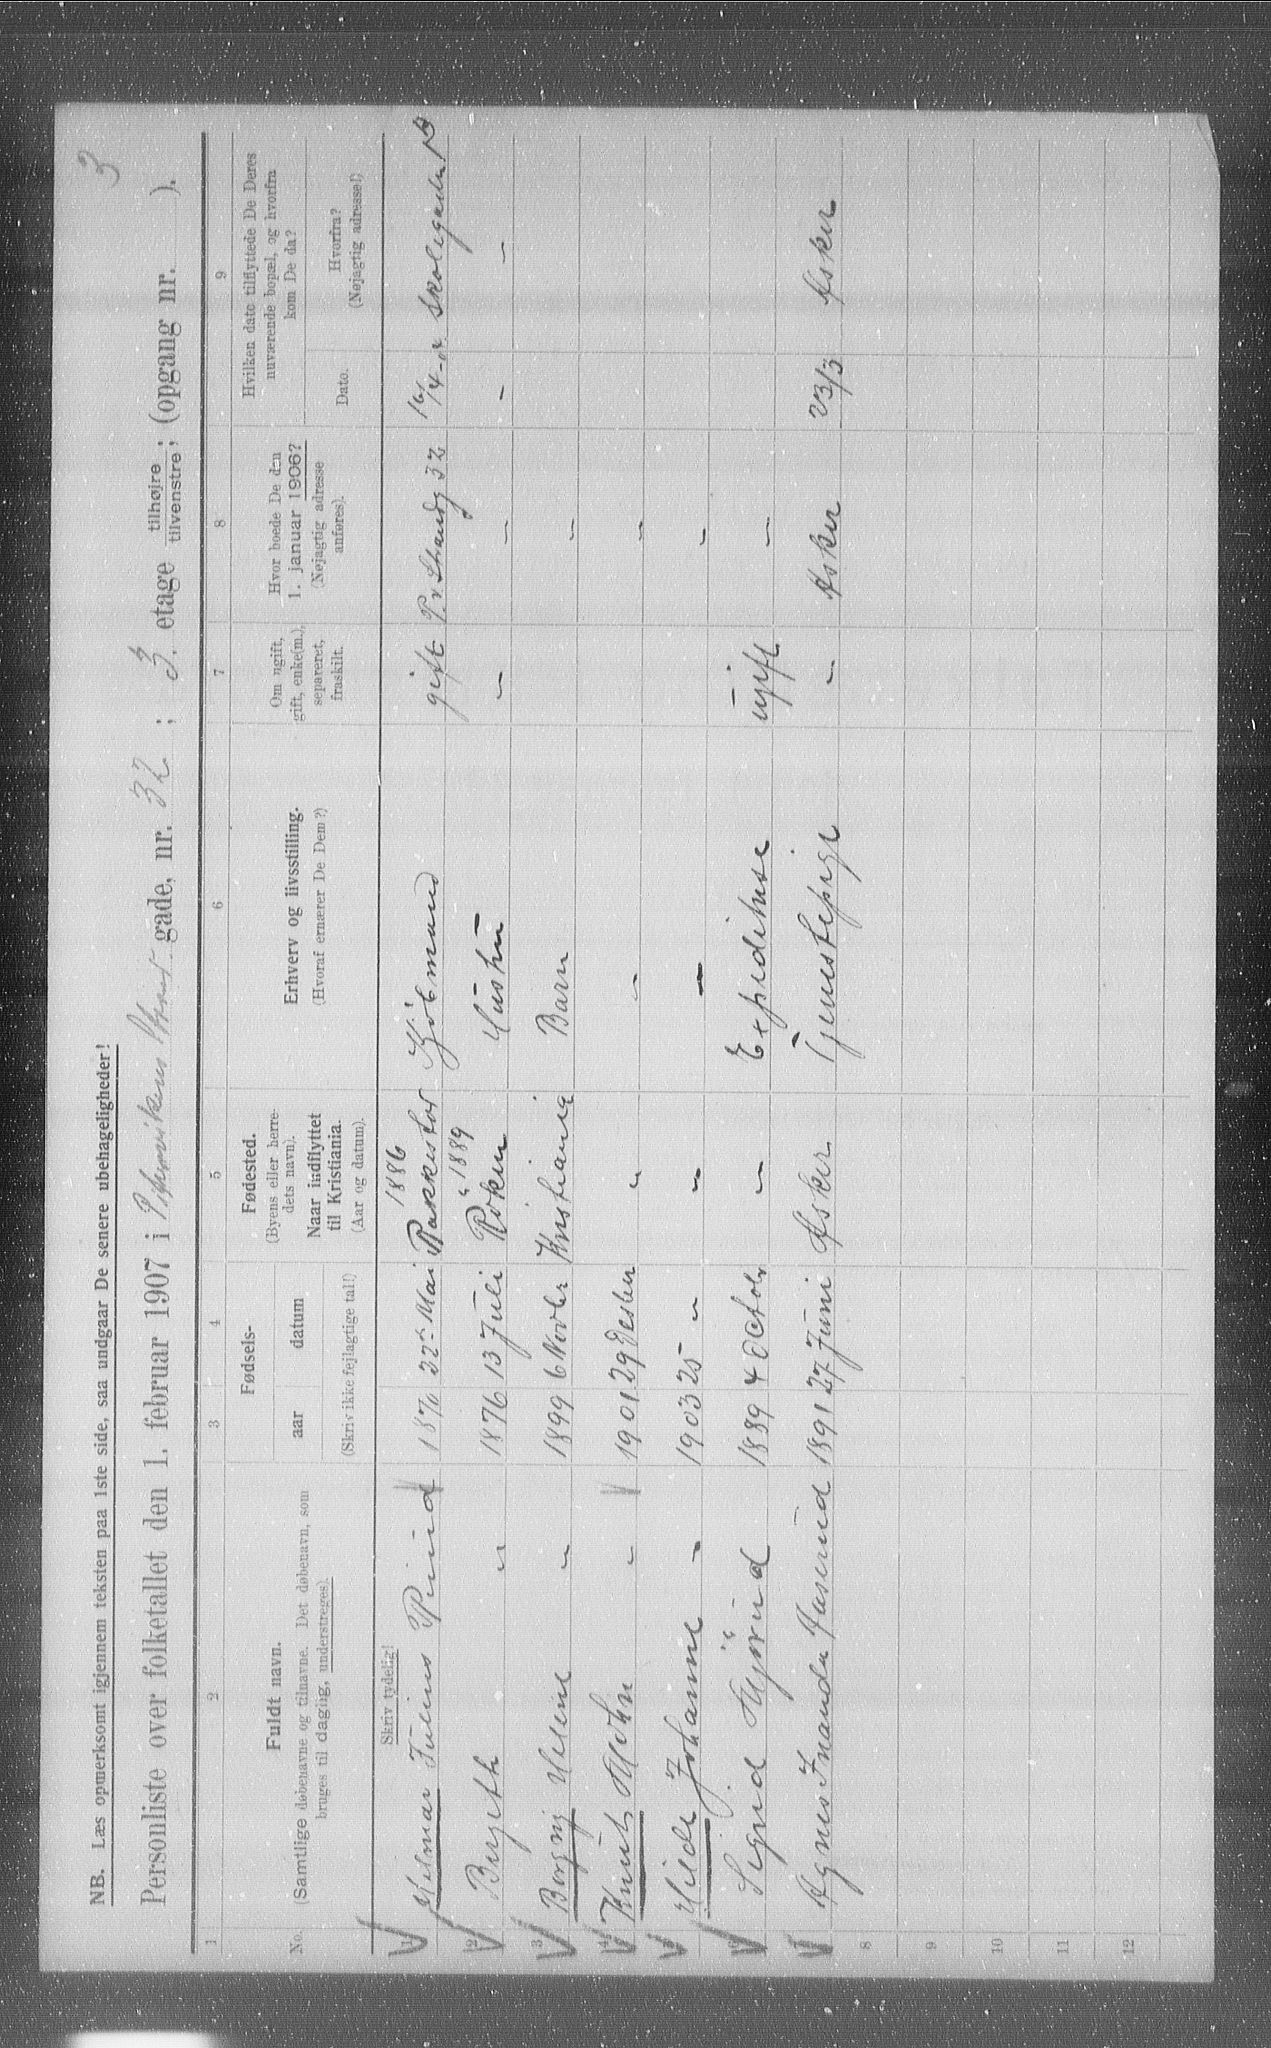 3
NB. Læs opmerksomt igjennem teksten paa 1ste side, saa undgaar De senere ubehageligheder!
Personliste over folketallet den 1. februar 1907 i gade, nr. 32 ; 3. etage tilhøjre tilvenstre; (opgang nr. ).
1 2 3 4 5 6 7 8 9
No. Fuldt navn.
(Samtlige døbenavne og tilnavne. Det døbenavn, som
bruges til daglig, understreges).
Skriv tydelig!
Fødsels-
aar datum
(Skriv ikke fejlagtige tal!)
Fødested.
(Byens eller herre-
dets navn).
Naar indflyttet
til Kristiania.
(Aar og datum).
Erhverv og livsstilling.
(Hvoraf ernærer De Dem?)
Om ugift,
gift, enke(m.),
separeret,
fraskilt.
Hvor boede De den
1. januar 1906?
(Nøjagtig adresse
anføres).
Hvilken dato tilflyttede De Deres
nuværende bopæl, og hvorfra
kom De da?
Dato.
Hvorfra?
(Nøjagtig adresse!)
1886
1 Hjelmar Julius Ruud 1870 22 Mai Rakkestad Kjøbmand gift P. v Strandg 32 Skolegaden
" 1889
2 Bergith " 1876 13 Juli Røken Hustru " " " "
3 Borgny Helene " 1899 6 Novbr Kristiania Barn "
4 Knut " 1901 29 Desbr " " "
5 Hilde Johanne " 1903 25 " " " "
6 Sigrid 1889 4 Octob " Expeditrise ugift "
7 Agnes 1891 27 Juni Asker Tjenestepige " Asker 23/3 Asker
8
9
10
11
12